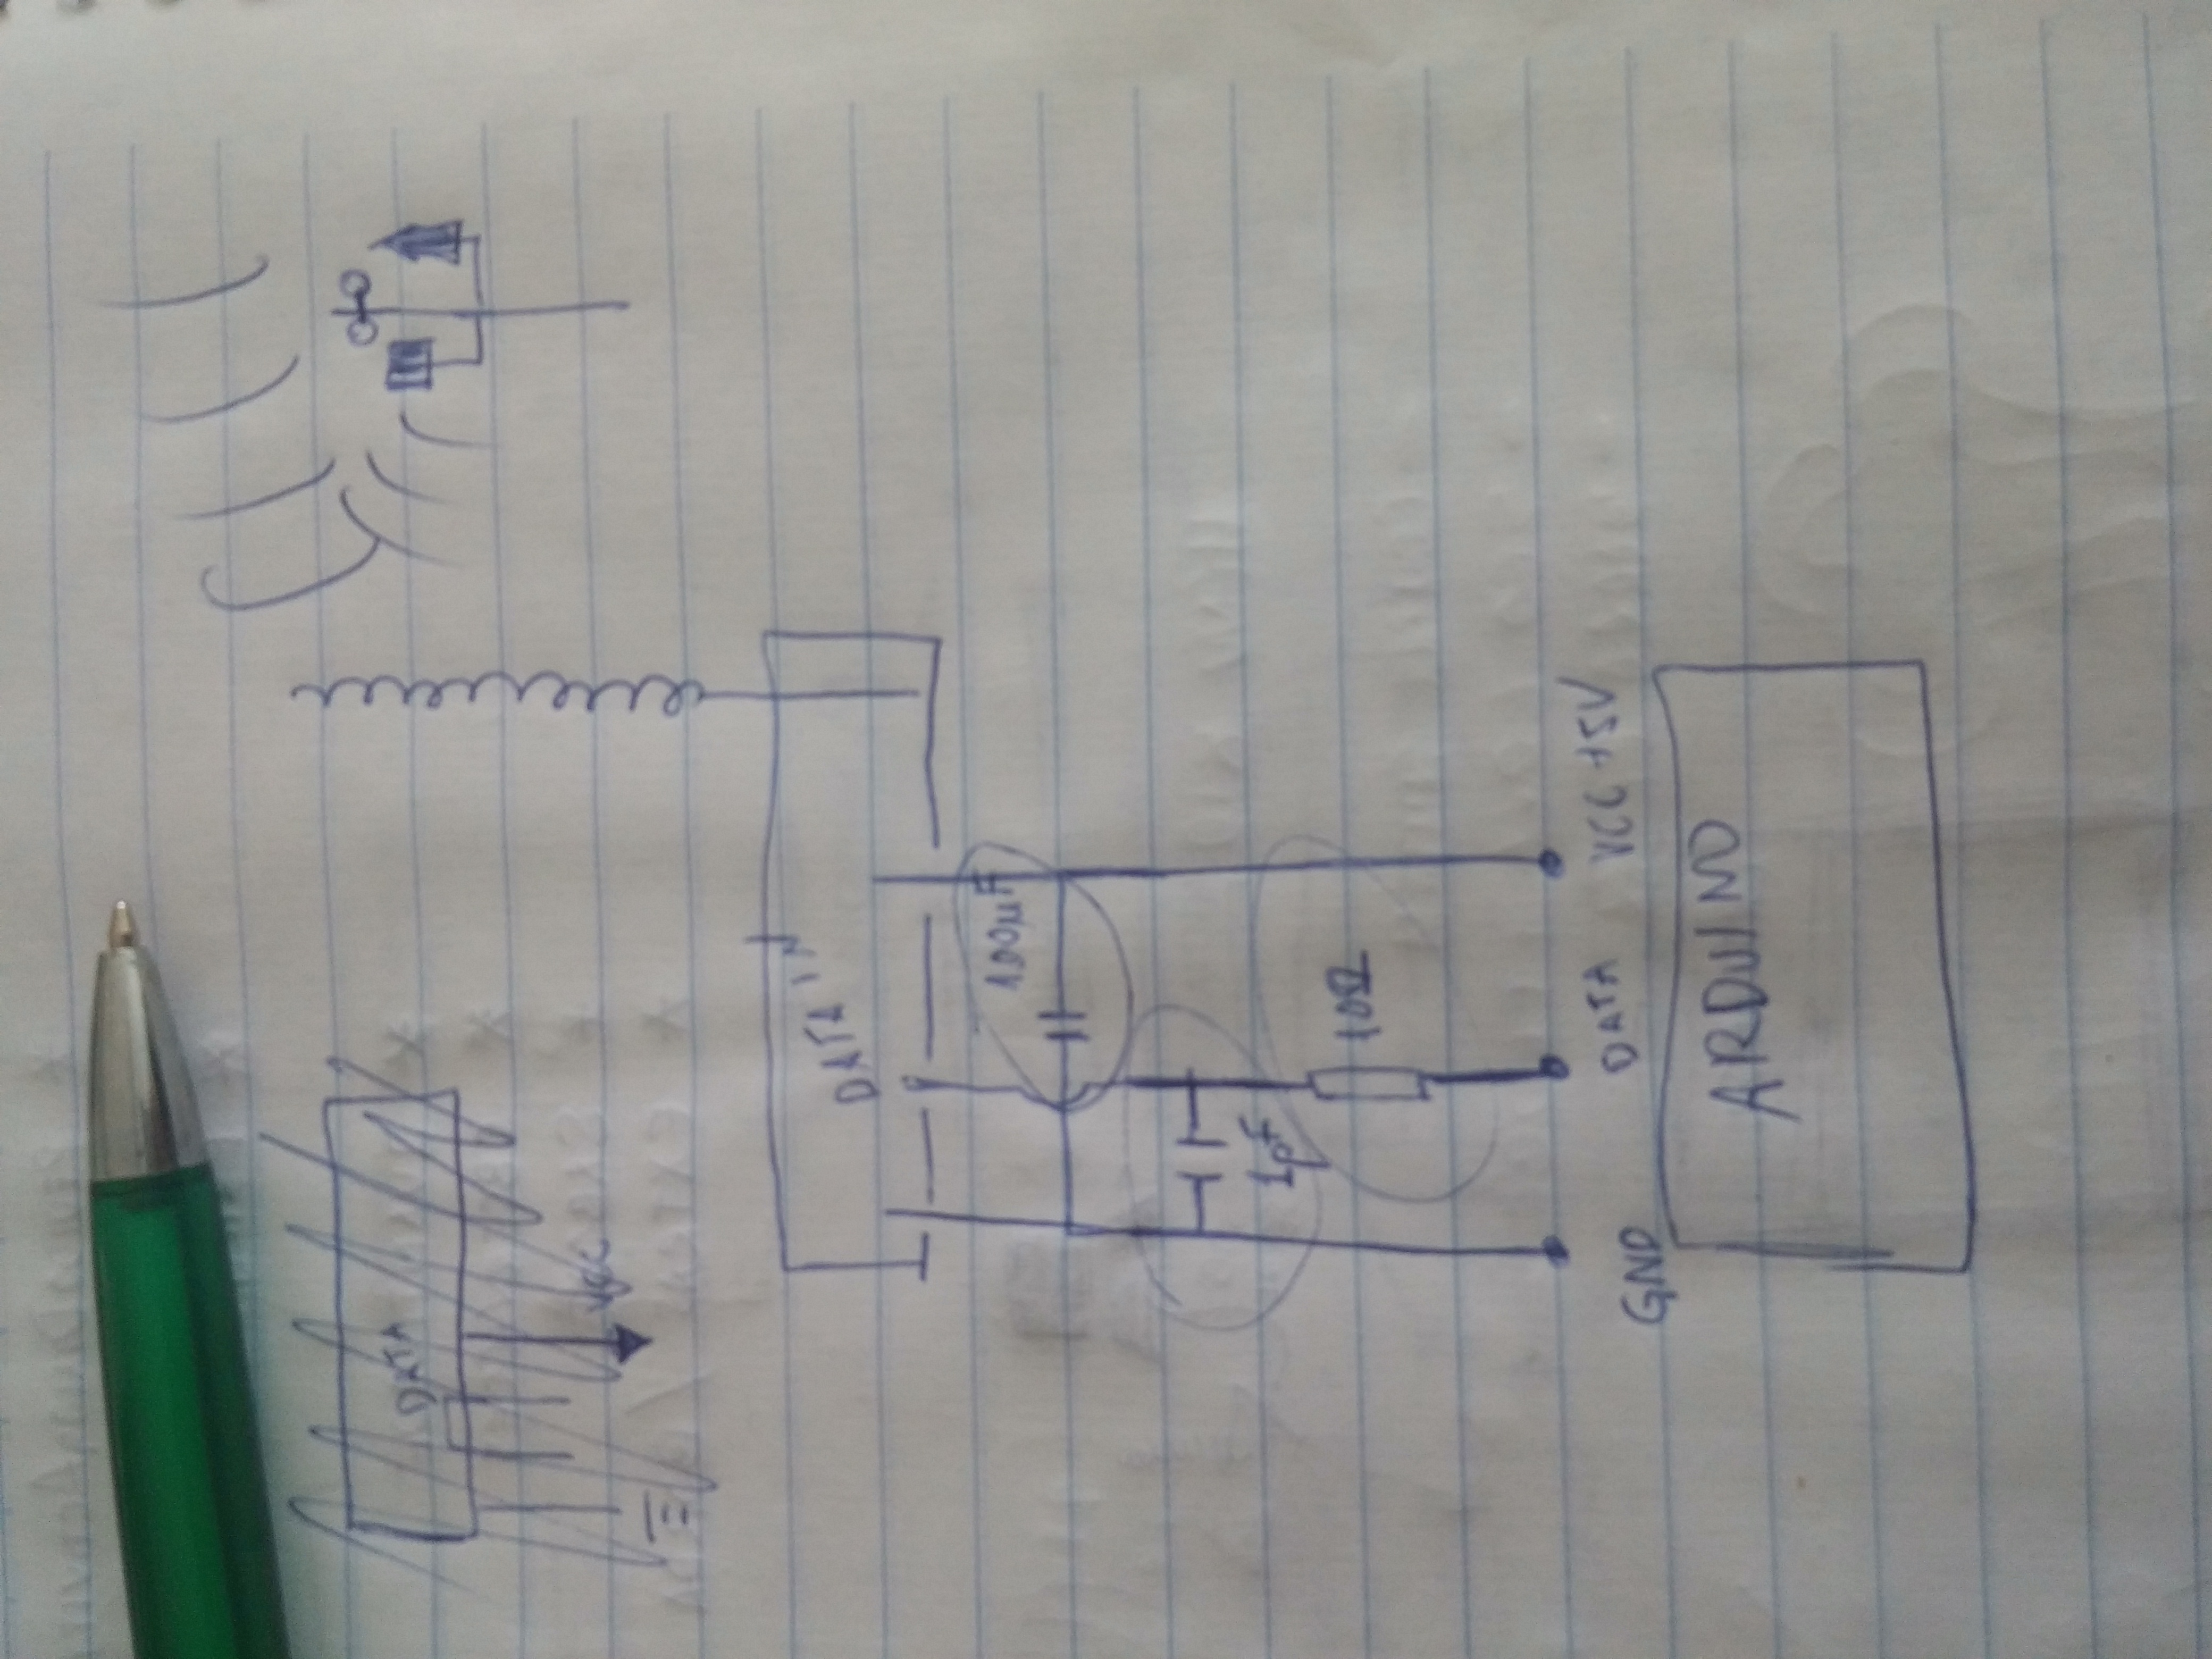 DATA
VCC
DATA IN
100µF
1pF
10Ω
GND
DATA
VCC +5V
ARDUINO